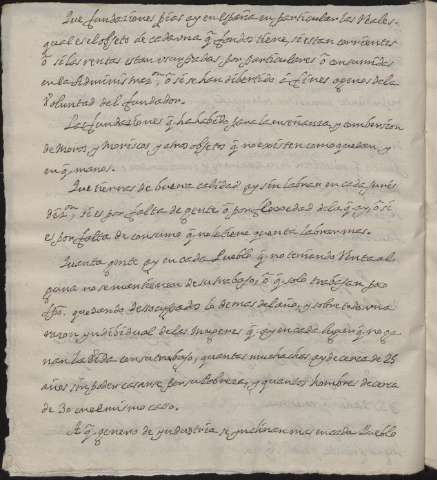 Que fundaciones pias ay en España en particular las Reales.
qual es el objeto de cada vna q.e fondos tiene, si estan corrientes
ô si las rentas estan vsurpadas, por particulares ô consumidas
en la Administraz.n, ô si se han divertido â fines agenos de la
Voluntad del fundador.
Las fundaziones q.e ha habido para la enseñanza, y combersion
de Moros, y Moriscos y otros objetos q.e no existen como quedan, y
en q.e manos.
Que tierras de buena calidad ay sin labrar en cada Juris
dic.n, si es por falta de gente, q.e por floxedad de la q.e ay, o si
es por falta de consumo q.e no le tiene quenta labrar mas.
Quanta gente ay en cada Pueblo q.e no teniendo Renta al
guna no se mantienen de su trabajo, ô q.e solo trabajan po
tpo. quedando desocupado lo demas del año, y sobre todo vna
razon yndibidual de las Mugeres q.e ay en cada lugar q.e no ga
nan la Vida con su trabajo, quantas muchachas ay de cerca de 25
años sin poder casarse por su Pobreza, y quantos hombres de cerca
de 30 en el mismo caso.
A q.e genero de yndustria se ynclinan mas en cada Pueblo